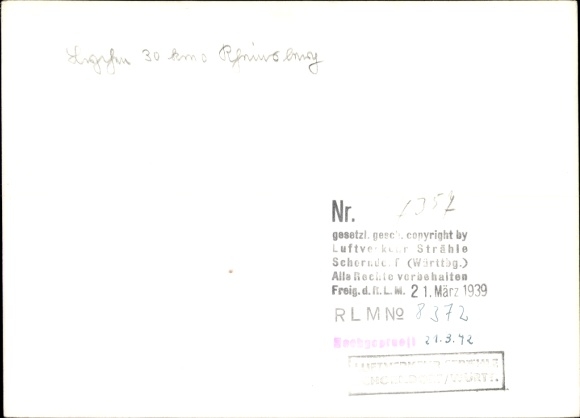 30 km o
Nr. 1357
gesetzl. gesch. copyright by
Luftverkehr Strähle
Schorndorf (Württbg.)
Alle Rechte vorbehalten
Freig. d. R. L. M. 21. März 1939
RLM No 8372
Nachgeprüft 21.3.42
LUFTVERKEHR STRÄHLE
SCHORNDORF/WÜRTT.